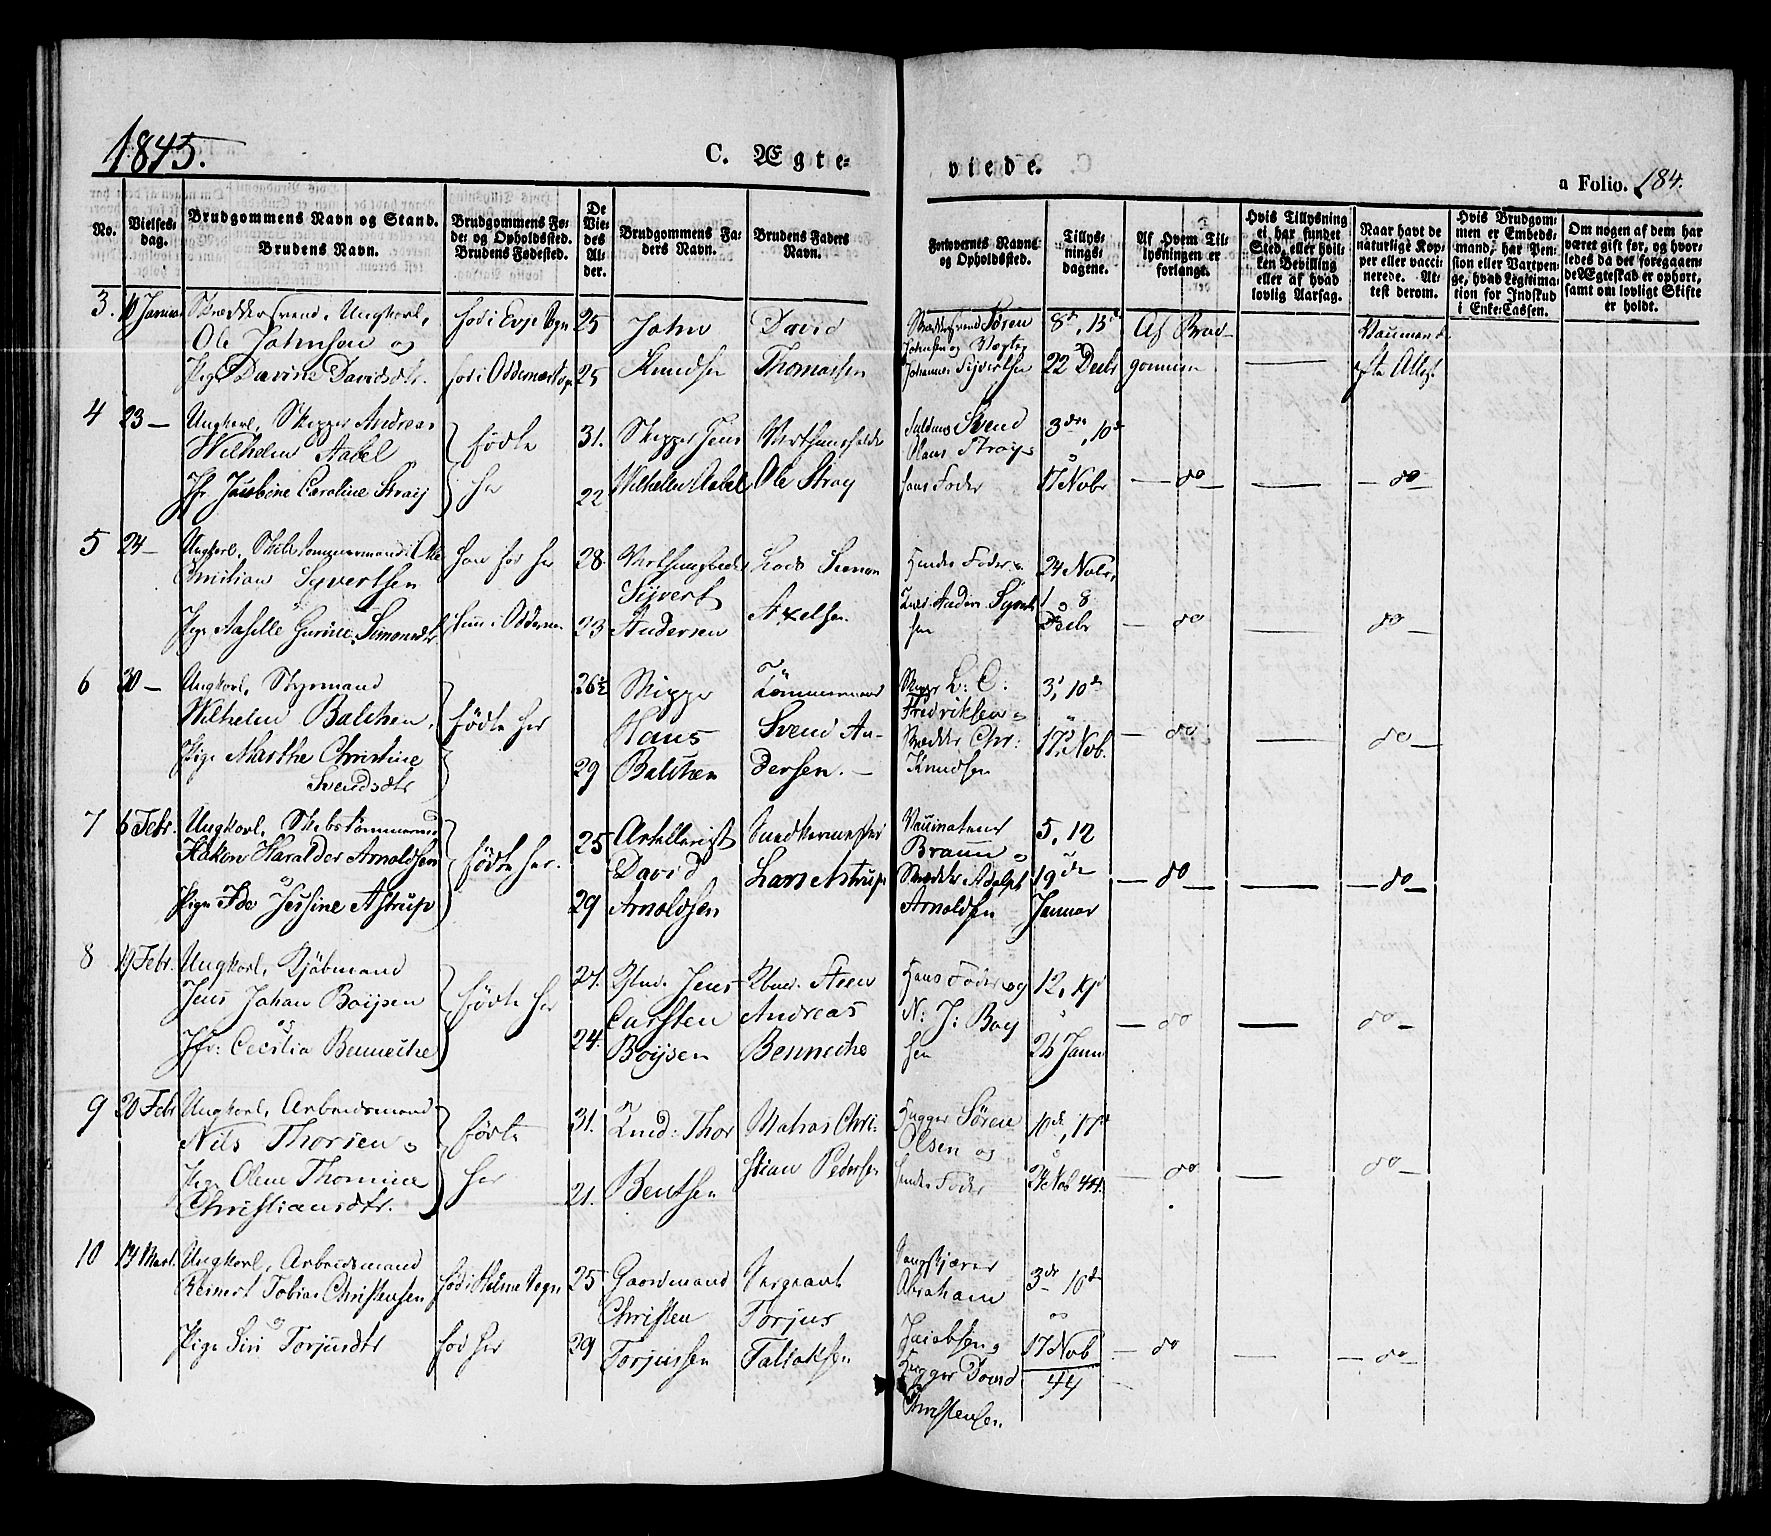 1845.
C. Ægte-
viede.
a Folio. 184.
No.
Vielses-
dag.
Brudgommens Navn og Stand.
Brudens Navn.
Brudgommens Fø-
de- og Opholdssted.
Brudens Fødested.
De
Vie-
des
Al-
der.
Brudgommens Fa-
ders Navn.
Brudens Faders
Navn.
Forlovernes Navne
og Opholdssted.
Tillys-
nings-
dagene.
Af Hvem Til-
lysningen er
forlangt.
Hvis Tillysning
ei har fundet
Sted, eller hvil-
ken Bevilling
eller af hvad
lovlig Aarsag.
Naar havt de
naturlige Kop-
per eller vacci-
nerede. At-
test derom.
Hvis Brudgom-
men er Embeds-
mand, har Pen-
sion eller Vartpen-
ge, hvad Legitima-
tion for Indskud
i Enke-Cassen.
Om nogen af dem har
været gift før, og hvor-
ledes da det foregaaen-
de Ægteskab er ophørt,
samt om lovligt Skifte
er holdt.
3.
Ungkarl,
Ole Johnsen og
Pige Davine Davidsdtr.
født i Evje Sogn
25
25
John
Knudsen
David
Thomassen
Søren
Johnsen og
Johannes Sijvertsen
8de, 15de
22 Decbr
Af Brud-
gommen
4
23 —
Ungkarl, Skipper Andreas
Wilhelm Aabel
Jfr. Jacobine Caroline Straij
fødte
her
31.
22
Skipper Jens
Wilhelm Aabel
Ole Straij
Svend
Olaus
hans Fader
3die, 10de
17 Nobr
— do —
— do —
5
24 —
Ungkarl,
Christian Syvertsen
Pige Aaselle Gurine Simonsdtr.
28.
23
Sijvert
Andersen
Simon
Axelsen
24 Nobr,
1 8
Decbr
— do —
do —
6
30 —
Ungkarl, Styrmand
Wilhelm Balchen.
Pige Marthe Christine
Svendsdtr
fødte her
26½
29
Skipper
Hans
Balchen
Tømmermand
Svend An-
dersen. —
L: C:
Fredriksen
Chr:
Knudsen
3de, 10de
17de Nob.
— do —
do —
7
6 Febr.
Ungkarl, Skibstømmermand
Håkon Haralder Arnoldsen
Pige Ida Jessine Astrup
fødte her.
25
29
Artillerist
David
Arnoldsen
Lars Astrup
Vaccinateur
Braun
Adolph
Arnoldsen
5, 12
19de
Januar
— do —
— do —
8
19 Febr.
Ungkarl, Kjøbmand
Jens Johan Boijsen
Jfr: Cecilia Benneche
fødte her
27.
24.
Jens
Carsten
Boijsen
Steen
Andreas
Benneche
hans Fader og
N: J: Boy
sen
12, 19de
26 Janu
— do —
do —
9
20 Febr
Ungkarl, Arbeidsmand
Nils Thorsen
Pige Olene Thomine
Christiansdtr.
fødte
her
31.
21.
Thor
Bentsen
Mathias Chri-
stian Pedersen
Søren
Olsen og
Fader
10de, 17de
24 Nob 44.
— do —
do —
10
Ungkarl, Arbeidsmand
Reinert Tobias Christensen
Pige Siri Torjusdtr
født i Holme Sogn
fød her
25
29
Gaardmand
Christen
Torjussen
Sergeant
Torjus
Tallaksen
Abraham
Jacobsen
David
Christensen
3de 10de
17 Nob
44
— do
— do —